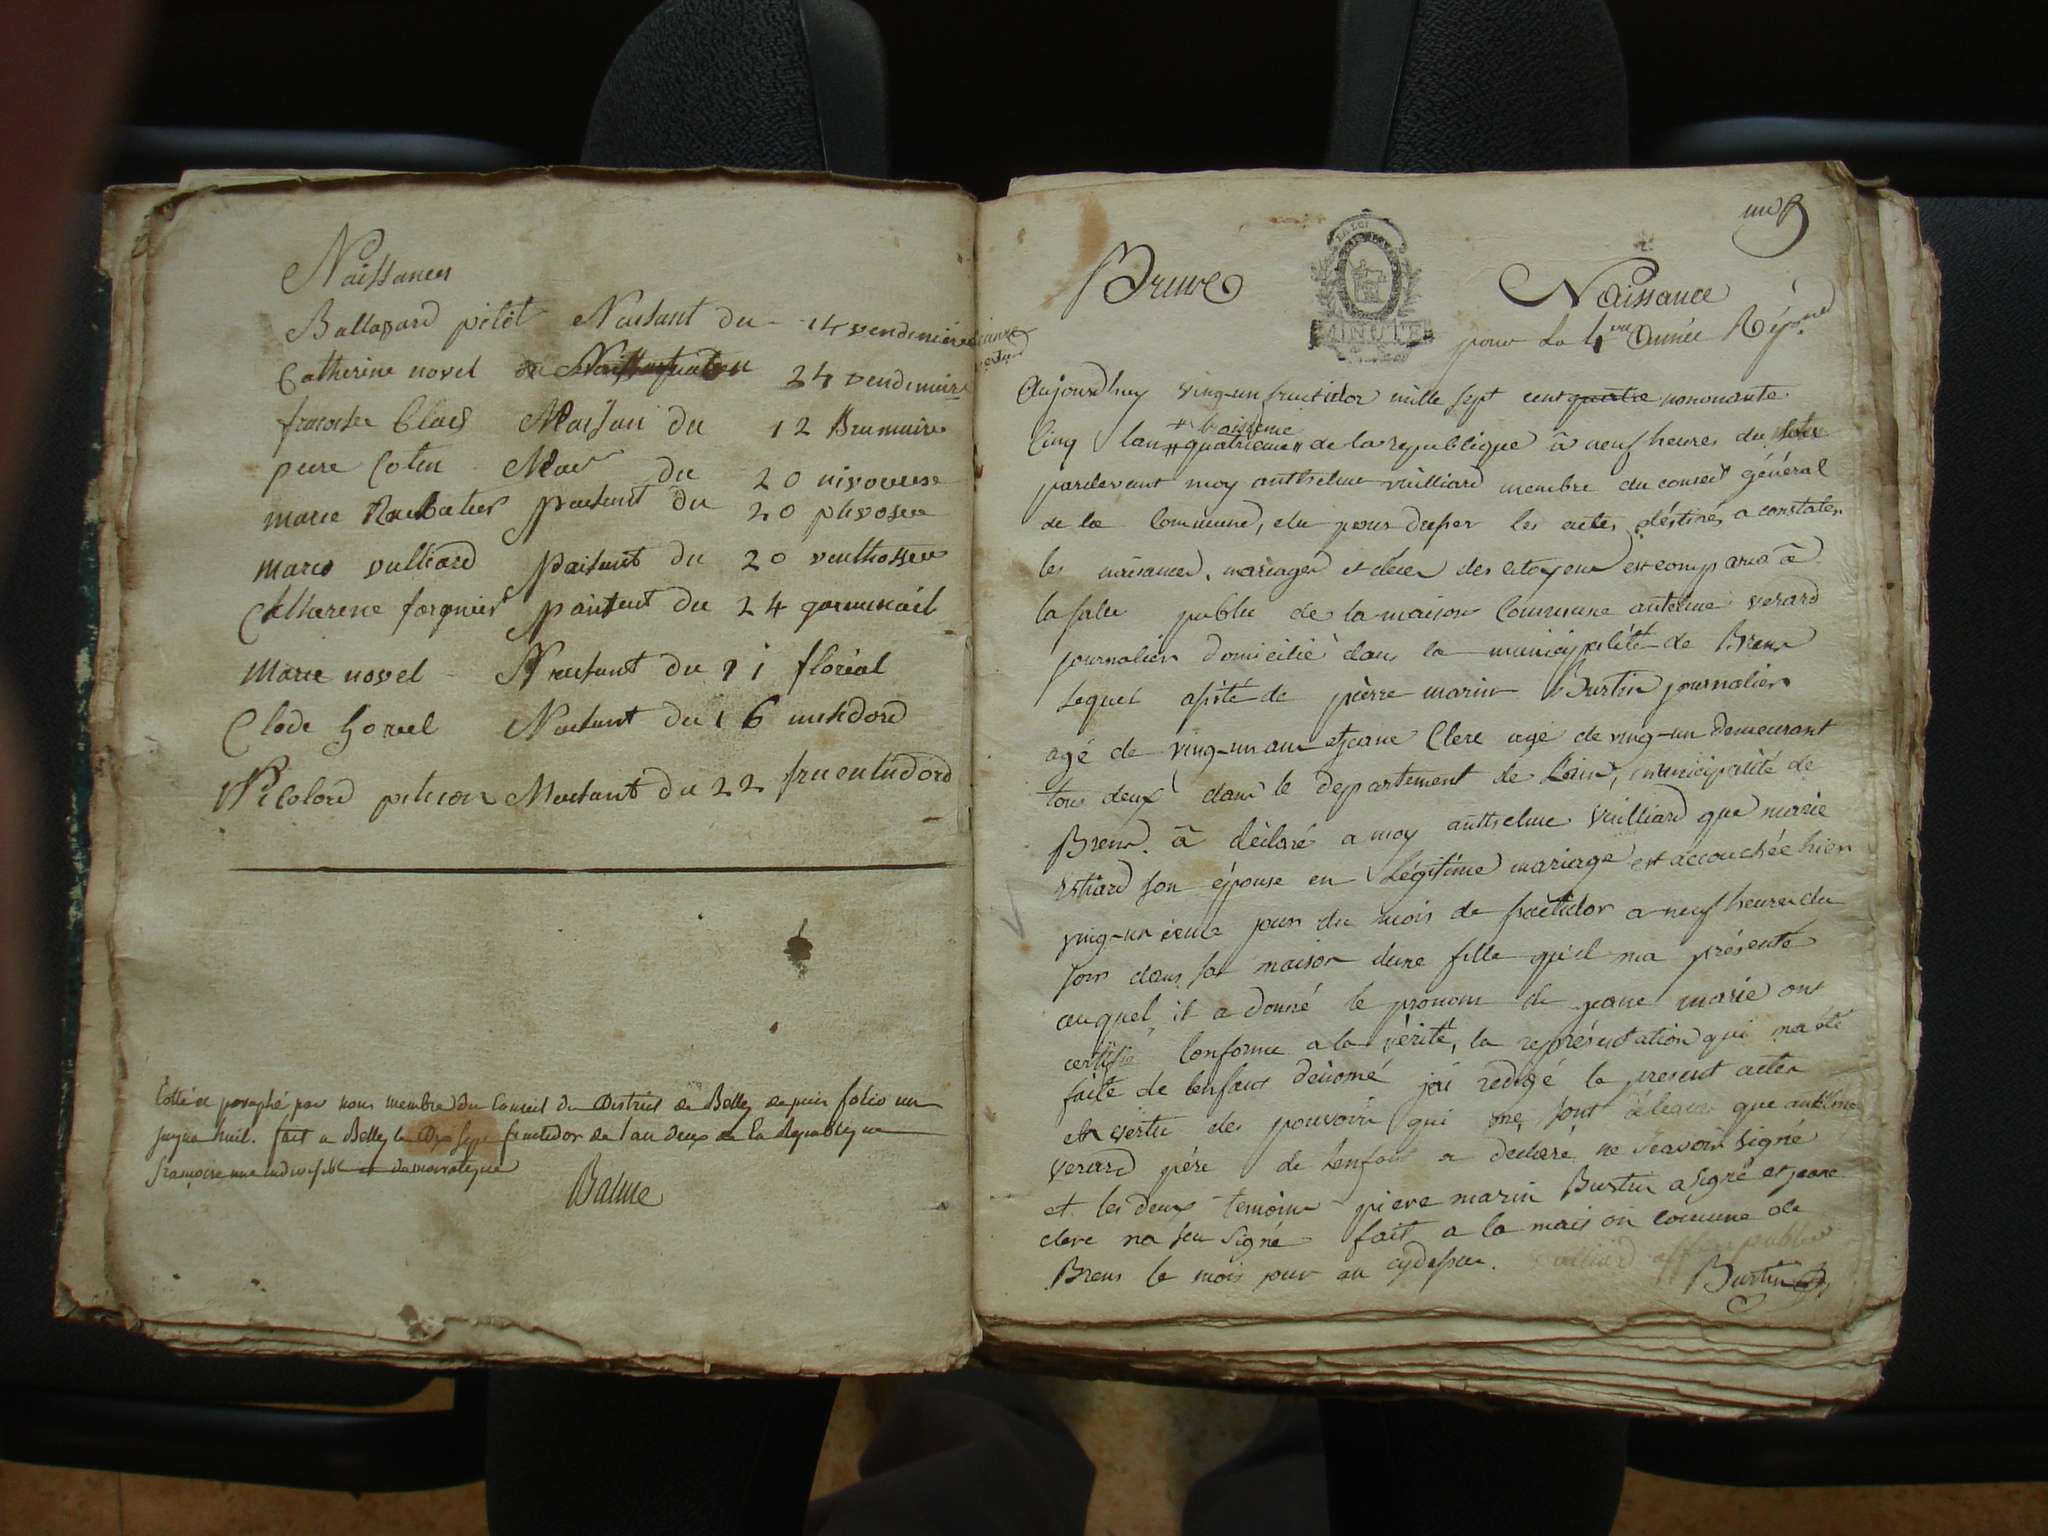 Naissances
Ballazard pitit Naisant du 14 vendemiere
Catherine novel 24 vendemiaire
francoise Clerc Naisan du 12 Brumaire
piere Cotin du 20 nivouese
marie paisant du 20 plivosee
marie vulliard paisant du 20 venthossee
Catherene forgnier paisant du 24 germinail
Marie novel Naisant du 11 floréal
Clode Naisant du 16 misidord
Nicolord Naisant du 22 fructidord
Cotté et paraphé par nous membre du Conseil du District de Belley depuis folio un
jusqua huit. fait a Belley le Dix sept fructidor de l'an deux de la Republique
françoise une indivisible et democratique
Balme
un
LA LOI
Brens Naissance
MINUTE
pour La 4me année
Aujourdhuy ving-un fructidor mille sept cent quatre nononante
troisieme
Cinq lan quatrieme de la republique à neuf heures du
pardevant moy anthelme vuilliard membre du conseil général
de la Commune, elu pour dresser les actes déstinés a constater
les naisances, mariages et déces des citoyens est comparus à
la sale public de la maison Commune antelme verard
journalier domicilié dans la municipalité de Brens
Lequel asisté de pierre marin Burtin journalier
agé de ving-un ans et jeane Clerc agé de ving-un demeurant
tous deux dans le departement de Lain, municipalité de
Brens. à déclaré a moy anthelme vuilliard que marie
son épouse en Légitime mariage est accouchée hier
ving-unieme jour du mois de fructidor a neuf heures du
soir dans sa maison dune fille qu'il ma présenté
auquel il a donné le pronom de jeane marie ont
certifié Conforme a la vérité, la représentation qui ma été
faite de lenfant dénomé jai redigé le present acter
en vertu des pouvoirs qui me sont délegués que antelme
verard pére de lenfant a déclaré ne scavoir signé
et les deux temoins piere marin Burtin a signé et jeane
clerc na seu signé fait a la maison comune de
Brens le mois jour an cydesus. vulliard officier public
Burtin